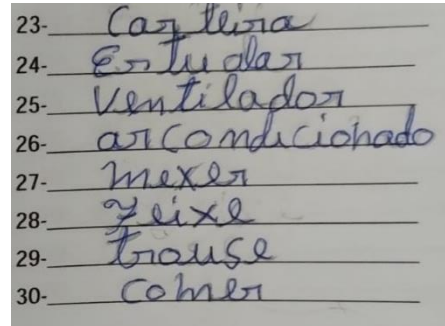 23- Carteira
24- Entudar
25- Ventilador
26- arcondicionado
27- mexer
28- Zeixe
29- trouse
30- comer